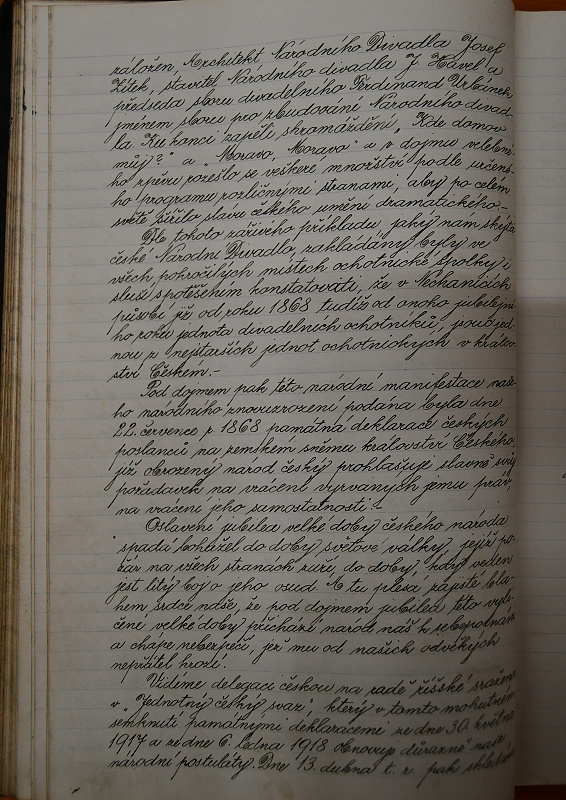 záložen, Architekt Národního Divadla Josef
Zítek, stavitel Národního divadla J. Havel a
předseda sboru divadelního Ferdinand Urbánek
jménem sboru pro zbudování Národního divad-
la. Ku konci zapěli shromáždění „Kde domov
můj?" a „Moravo, Moravo" a v dojmu velebné-
ho zpěvu rozešlo se veškeré množství podle určené-
ho programu rozličnými stranami, aby po celém
světě šířilo slávu českého umění dramatického.-
Dle tohoto zářivého příkladu jaký nám skýtá
české Národní Divadlo, zakládány byly ve
všech pokročilých místech ochotnické spolky i
sluší s potěšením konstatovati, že v Nechanicích
působí již od roku 1868 tudíž od onoho jubilejní-
ho roku jednota divadelních ochotníků, jsouc jed-
nou z nejstarších jednot ochotnických v králov-
ství Českém.-
Pod dojmem pak této národní manifestace naše-
ho národního znovuzrození podána byla dne
22. července r. 1868 památná deklarace českých
poslanců na zemském sněmu království Českého,
jíž obrozený národ český prohlašuje slavně svůj
požadavek na vrácení vyrvaných jemu práv,
na vrácení jeho samostatnosti!-
Oslavení jubilea velké doby českého národa
spadá bohužel do doby světové války, jejíž po-
žár na všech stranách zuří, do doby, kdy veden
jest lítý boj o jeho osud. A tu plesá zajisté bla-
hem srdce naše, že pod dojmem jubilea této vylí-
čené velké doby přichází národ náš k sebepoznání
a chápe nebezpečí, jež mu od našich odvěkých
nepřátel hrozí.
Vidíme delegaci českou na radě říšské sraženou
v „Jednotný český svaz", který v tomto mohutném
semknutí památnými deklaracemi ze dne 30. května
1917 a ze dne 6. ledna 1918 obnovuje důrazně naše
národní postuláty. Dne 13. dubna t. r. pak